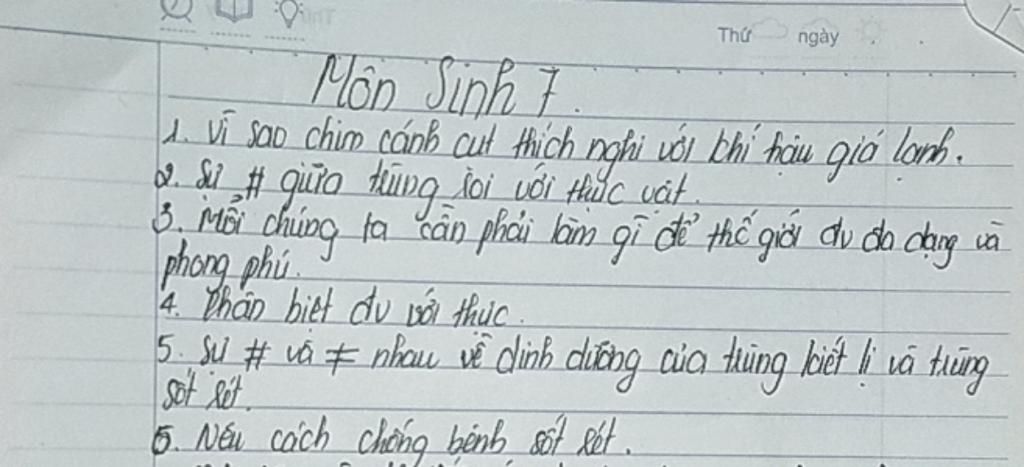 Thứ ngày
Môn Sinh 7.
1. Vì sao chim cánh cụt thích nghi với khí hậu giá lạnh.
2. Sự # giữa trùng roi với thực vật.
3. Mỗi chúng ta cần phải làm gì để thế giới đv đa dạng và
phong phú.
4. Phân biệt đv với thực.
5. Sự # và ≠ nhau về dinh dưỡng của trùng kiết lị và trùng
sốt rét.
6. Nêu cách chống bệnh sốt rét.